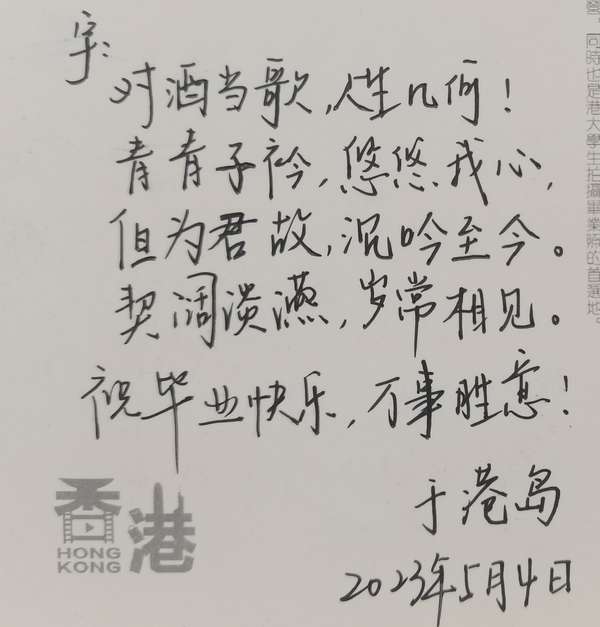 宇：
对酒当歌，人生几何！
青青子衿，悠悠我心，
但为君故，沉吟至今。
契阔谈䜩，岁常相见。
祝毕业快乐，万事胜意！
于港岛
2023年5月4日
香港
HONG
KONG
同時也是港大學生拍攝畢業照的首選地。